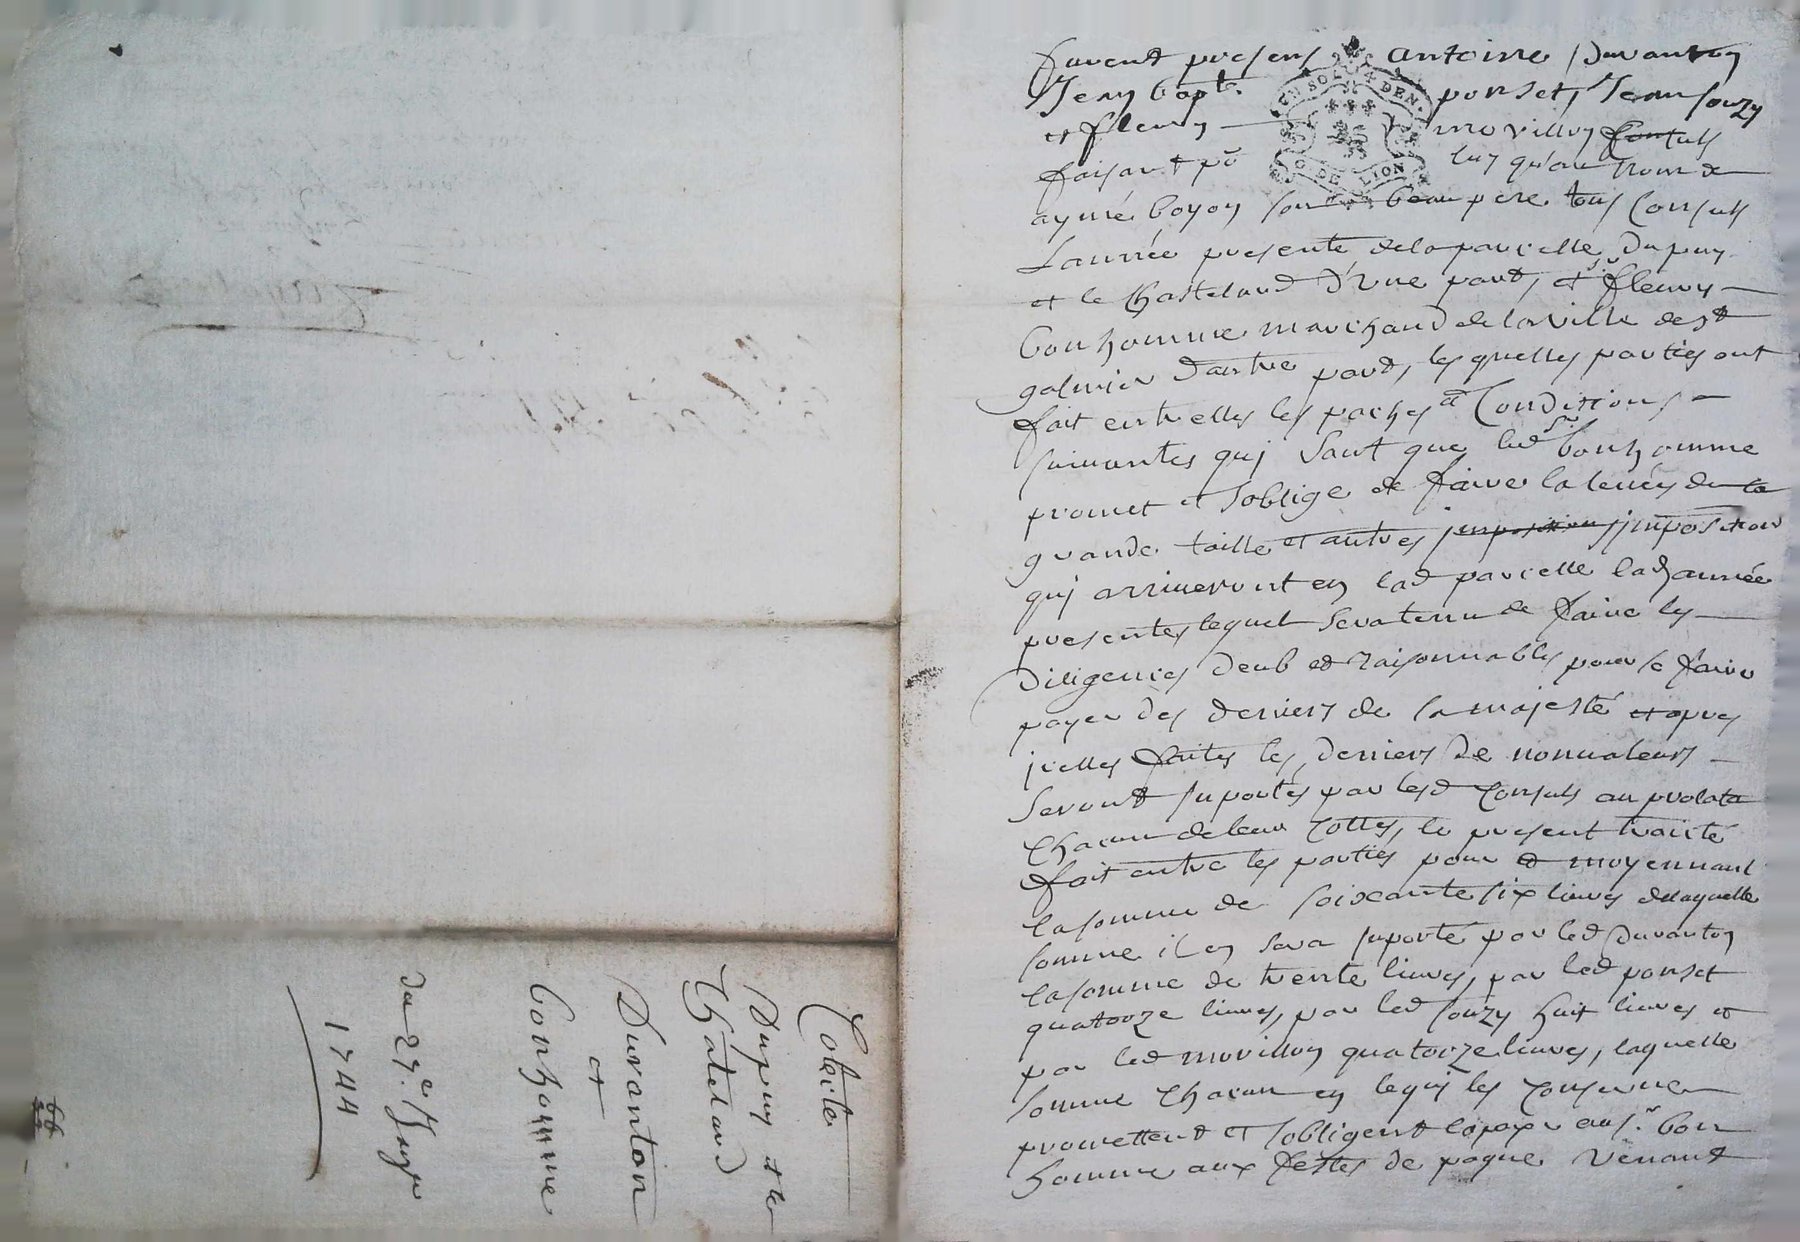 furent presens antoine Duranton
Jean bapte. ponset, Jean souzy
et fleury morillon
faisant po luy qu'au nom de
aymé boyon son beau pere tous consuls
Lannée presente de la parcelle Dupuy
et le Chastelard d'Une part, et sr. fleury
bonhomme marchand de la ville de st
galmier dautre part, les quelles parties ont
fait entrelles les paches et Conditions
suivantes quj sont que led sr. bonhomme
promet et soblige de faire la levée de la
grande taille et autres impositions jmposition
quj arriveront en lad parcelle lad année
presente, lequel sera tenu de faire les
Diligences deub et raisonnables pour se faire
payer des deniers de sa majesté et apres
jcelles faites les deniers de nonvaleurs
seront suportés par lesd Consuls au prolata
Chacun de leur Cottes, le present traité
fait entre les parties pour et moyennant
la somme de soixante six livres de laquelle
somme il en sera suporté par led Duranton
la somme de trente livres, par led ponset
quatorze livres, par led souzy huit livres et
par led morillon quatorze livres, laquelle
somme Chacun en le quj les Conserne
promettent et sobligent la payer au sr. bon
homme aux festes de paque venant
Cotaite
Dupuy et le
Chatelard
Duranton
et
bonhomme
du 27e
1744
66